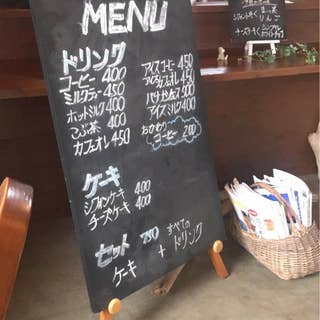 MENU
ドリンク
コーヒー 400
ミルクティー 450
ホットミルク 400
こぶ茶 400
カフェオレ 450
アイスコーヒー 450
アイスカフェオレ 500
アイスミルク 400
おかわり
コーヒー 200
ケーキ
シフォンケーキ 400
チーズケーキ 400
セット 750
ケーキ + すべてのドリンク
りんご